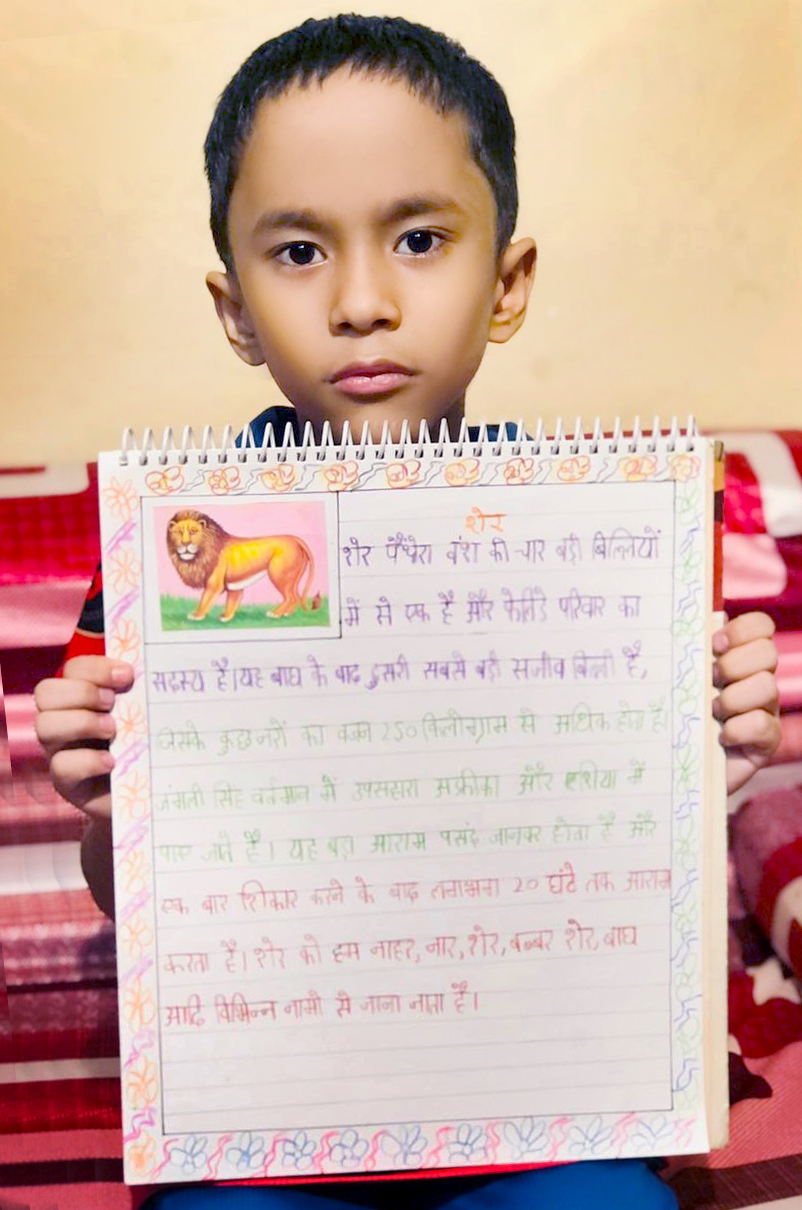 शेर
शेर पैंथेरा वंश की चार बड़ी बिल्लियों
में से एक है और फेलिडे परिवार का
सदस्य है। यह बाघ के बाद दुसरी सबसे बड़ी सजीव बिल्ली है,
जिसके कुछ नरों का वजन 250 किलोग्राम से अधिक होता है।
जंगली सिंह वर्तमान में उपसहारा अफ्रीका और एशिया में
पाए जाते है। यह बड़ा आराम पसंद जानवर होता है और
एक बार शिकार करने के बाद लगाभगा 20 घंटे तक आराम
करता है। शेर को हम नाहर, नार, शेर, बब्बर शेर, बाघ
आदि विभिन्न नामो से जाना जाता है।